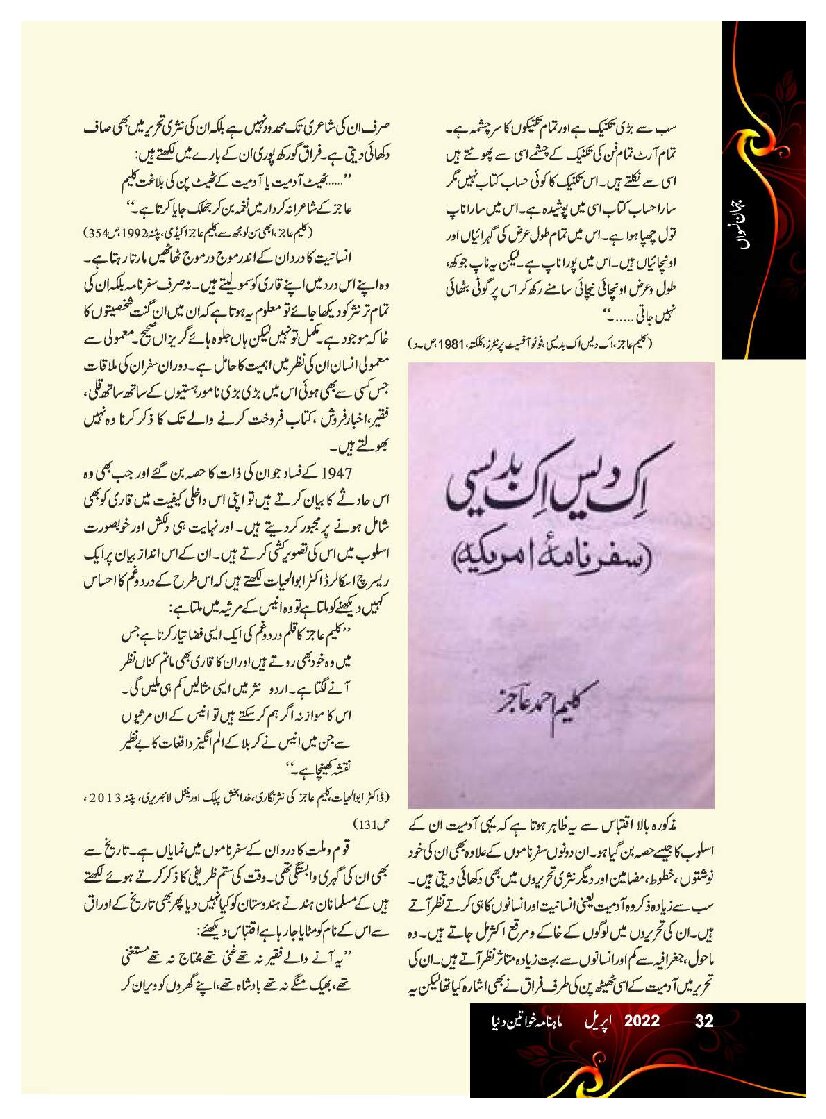 جہان نسواں
سب سے بڑی تکنیک ہے اور تمام تکنیکوں کا سرچشمہ ہے۔
تمام آرٹ تمام فن کی تکنیک کے چشمے اسی سے پھوٹتے ہیں
اسی سے نکلتے ہیں۔ اس تکنیک کا کوئی حساب کتاب نہیں مگر
سارا حساب کتاب اسی میں پوشیدہ ہے۔ اس میں سارا ناپ
تول چھپا ہوا ہے۔ اس میں تمام طول عرض کی گہرائیاں اور
اونچائیاں ہیں۔ اس میں پورا ناپ ہے۔ لیکن یہ ناپ جوکھ،
طول و عرض اونچائی نیچائی سامنے رکھ کر اس پر گوٹی بٹھائی
نہیں جاتی ......۔‘‘
(کلیم عاجز، اک دیس اک بدیسی، فوٹو آفسیٹ پرنٹرز، کلکتہ، 1981 ص۔ د)
اِک دیس اِک بدیسی
(سفر نامۂ امریکہ)
کلیم احمد عاجز
مذکورہ بالا اقتباس سے یہ ظاہر ہوتا ہے کہ یہی آدمیت ان کے
اسلوب کا جیسے حصہ بن گیا ہو۔ ان دونوں سفرناموں کے علاوہ بھی ان کی خود
نوشتوں، خطوط، مضامین اور دیگر نثری تحریروں میں بھی دکھائی دیتی ہیں۔
سب سے زیادہ ذکر وہ آدمیت یعنی انسانیت اور انسانوں کا ہی کرتے نظر آتے
ہیں۔ ان کی تحریروں میں لوگوں کے خاکے و مرقع اکثر مل جاتے ہیں۔ وہ
ماحول، جغرافیہ سے کم اور انسانوں سے بہت زیادہ متاثر نظر آتے ہیں۔ ان کی
تحریر میں آدمیت کے اسی ٹھیٹھ پن کی طرف فراق نے بھی اشارہ کیا تھا لیکن یہ
صرف ان کی شاعری تک محدود نہیں ہے بلکہ ان کی نثری تحریر میں بھی صاف
دکھائی دیتی ہے۔ فراق گورکھپوری ان کے بارے میں لکھتے ہیں:
’’......ٹھیٹ آدمیت یا آدمیت کے ٹھیٹ پن کی بلاغت کلیم
عاجز کے شاعرانہ کردار میں نغمہ بن کر جھلک جایا کرتا ہے۔‘‘
(کلیم عاجز، ابھی سن لو مجھ سے، کلیم عاجز اکیڈمی، پٹنہ 1992 ص 354)
انسانیت کا درد ان کے اندر موج در موج ٹھاٹھیں مارتا رہتا ہے۔
وہ اپنے اس درد میں اپنے قاری کو سمو لیتے ہیں۔ نہ صرف سفرنامہ بلکہ ان کی
تمام تر نثر کو دیکھا جائے تو معلوم یہ ہوتا ہے کہ ان میں ان گنت شخصیتوں کا
خاکہ موجود ہے۔ مکمل تو نہیں لیکن ہاں جلوہ ہائے گریزاں صحیح۔ معمولی سے
معمولی انسان ان کی نظر میں اہمیت کا حامل ہے۔ دوران سفر ان کی ملاقات
جس کسی سے بھی ہوئی اس میں بڑی بڑی نامور ہستیوں کے ساتھ ساتھ قلی،
فقیر، اخبار فروش، کتاب فروخت کرنے والے تک کا ذکر کرنا وہ نہیں
بھولتے ہیں۔
1947 کے فساد جو ان کی ذات کا حصہ بن گئے اور جب بھی وہ
اس حادثے کا بیان کرتے ہیں تو اپنی اس داخلی کیفیت میں قاری کو بھی
شامل ہونے پر مجبور کر دیتے ہیں۔ اور نہایت ہی دلکش اور خوبصورت
اسلوب میں اس کی تصویر کشی کرتے ہیں۔ ان کے اس انداز بیان پر ایک
ریسرچ اسکالر ڈاکٹر ابوالحیات لکھتے ہیں کہ اس طرح کے درد و غم کا احساس
کہیں دیکھنے کو ملتا ہے تو وہ انیس کے مرثیہ میں ملتا ہے:
’’کلیم عاجز کا قلم درد و غم کی ایک ایسی فضا تیار کرتا ہے جس
میں وہ خود بھی روتے ہیں اور ان کا قاری بھی ماتم کناں نظر
آنے لگتا ہے۔ اردو نثر میں ایسی مثالیں کم ہی ملیں گی۔
اس کا موازنہ اگر ہم کر سکتے ہیں تو انیس کے ان مرثیوں
سے جن میں انیس نے کربلا کے الم انگیز واقعات کا بے نظیر
نقشہ کھینچا ہے۔‘‘
(ڈاکٹر ابوالحیات، کلیم عاجز کی نثر نگاری، خدا بخش پبلک اورینٹل لائبریری، پٹنہ 2013،
ص 131)
قوم و ملت کا درد ان کے سفرناموں میں نمایاں ہے۔ تاریخ سے
بھی ان کی گہری وابستگی تھی۔ وقت کی ستم ظریفی کا ذکر کرتے ہوئے لکھتے
ہیں کے مسلمانان ہند نے ہندوستان کو کیا نہیں دیا پھر بھی تاریخ کے اوراق
سے اس کے نام کو مٹایا جا رہا ہے اقتباس دیکھئے:
’’یہ آنے والے فقیر نہ تھے غنی تھے محتاج نہ تھے مستغنی
تھے، بھیک منگے نہ تھے بادشاہ تھے، اپنے گھروں کو ویران کر
ماہنامہ خواتین دنیا اپریل 2022 32